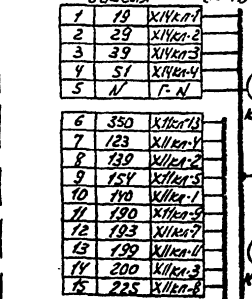 1 19 X14кл-1
2 29 X14кл-2
3 39 X14кл-3
4 51 X14кл-4
5 N Г-N
6 350 X11кл-13
7 123 X11кл-4
8 139 X11кл-2
9 154 X11кл-5
10 140 X11кл-1
11 190 X11кл-9
12 193 X11кл-7
13 199 X11кл-11
14 200 X11кл-3
15 225 X11кл-8